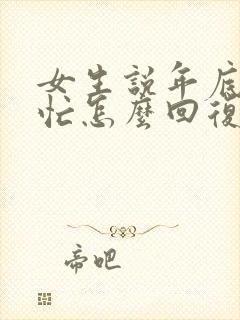 女生説年底
忙怎麼回復
帝吧